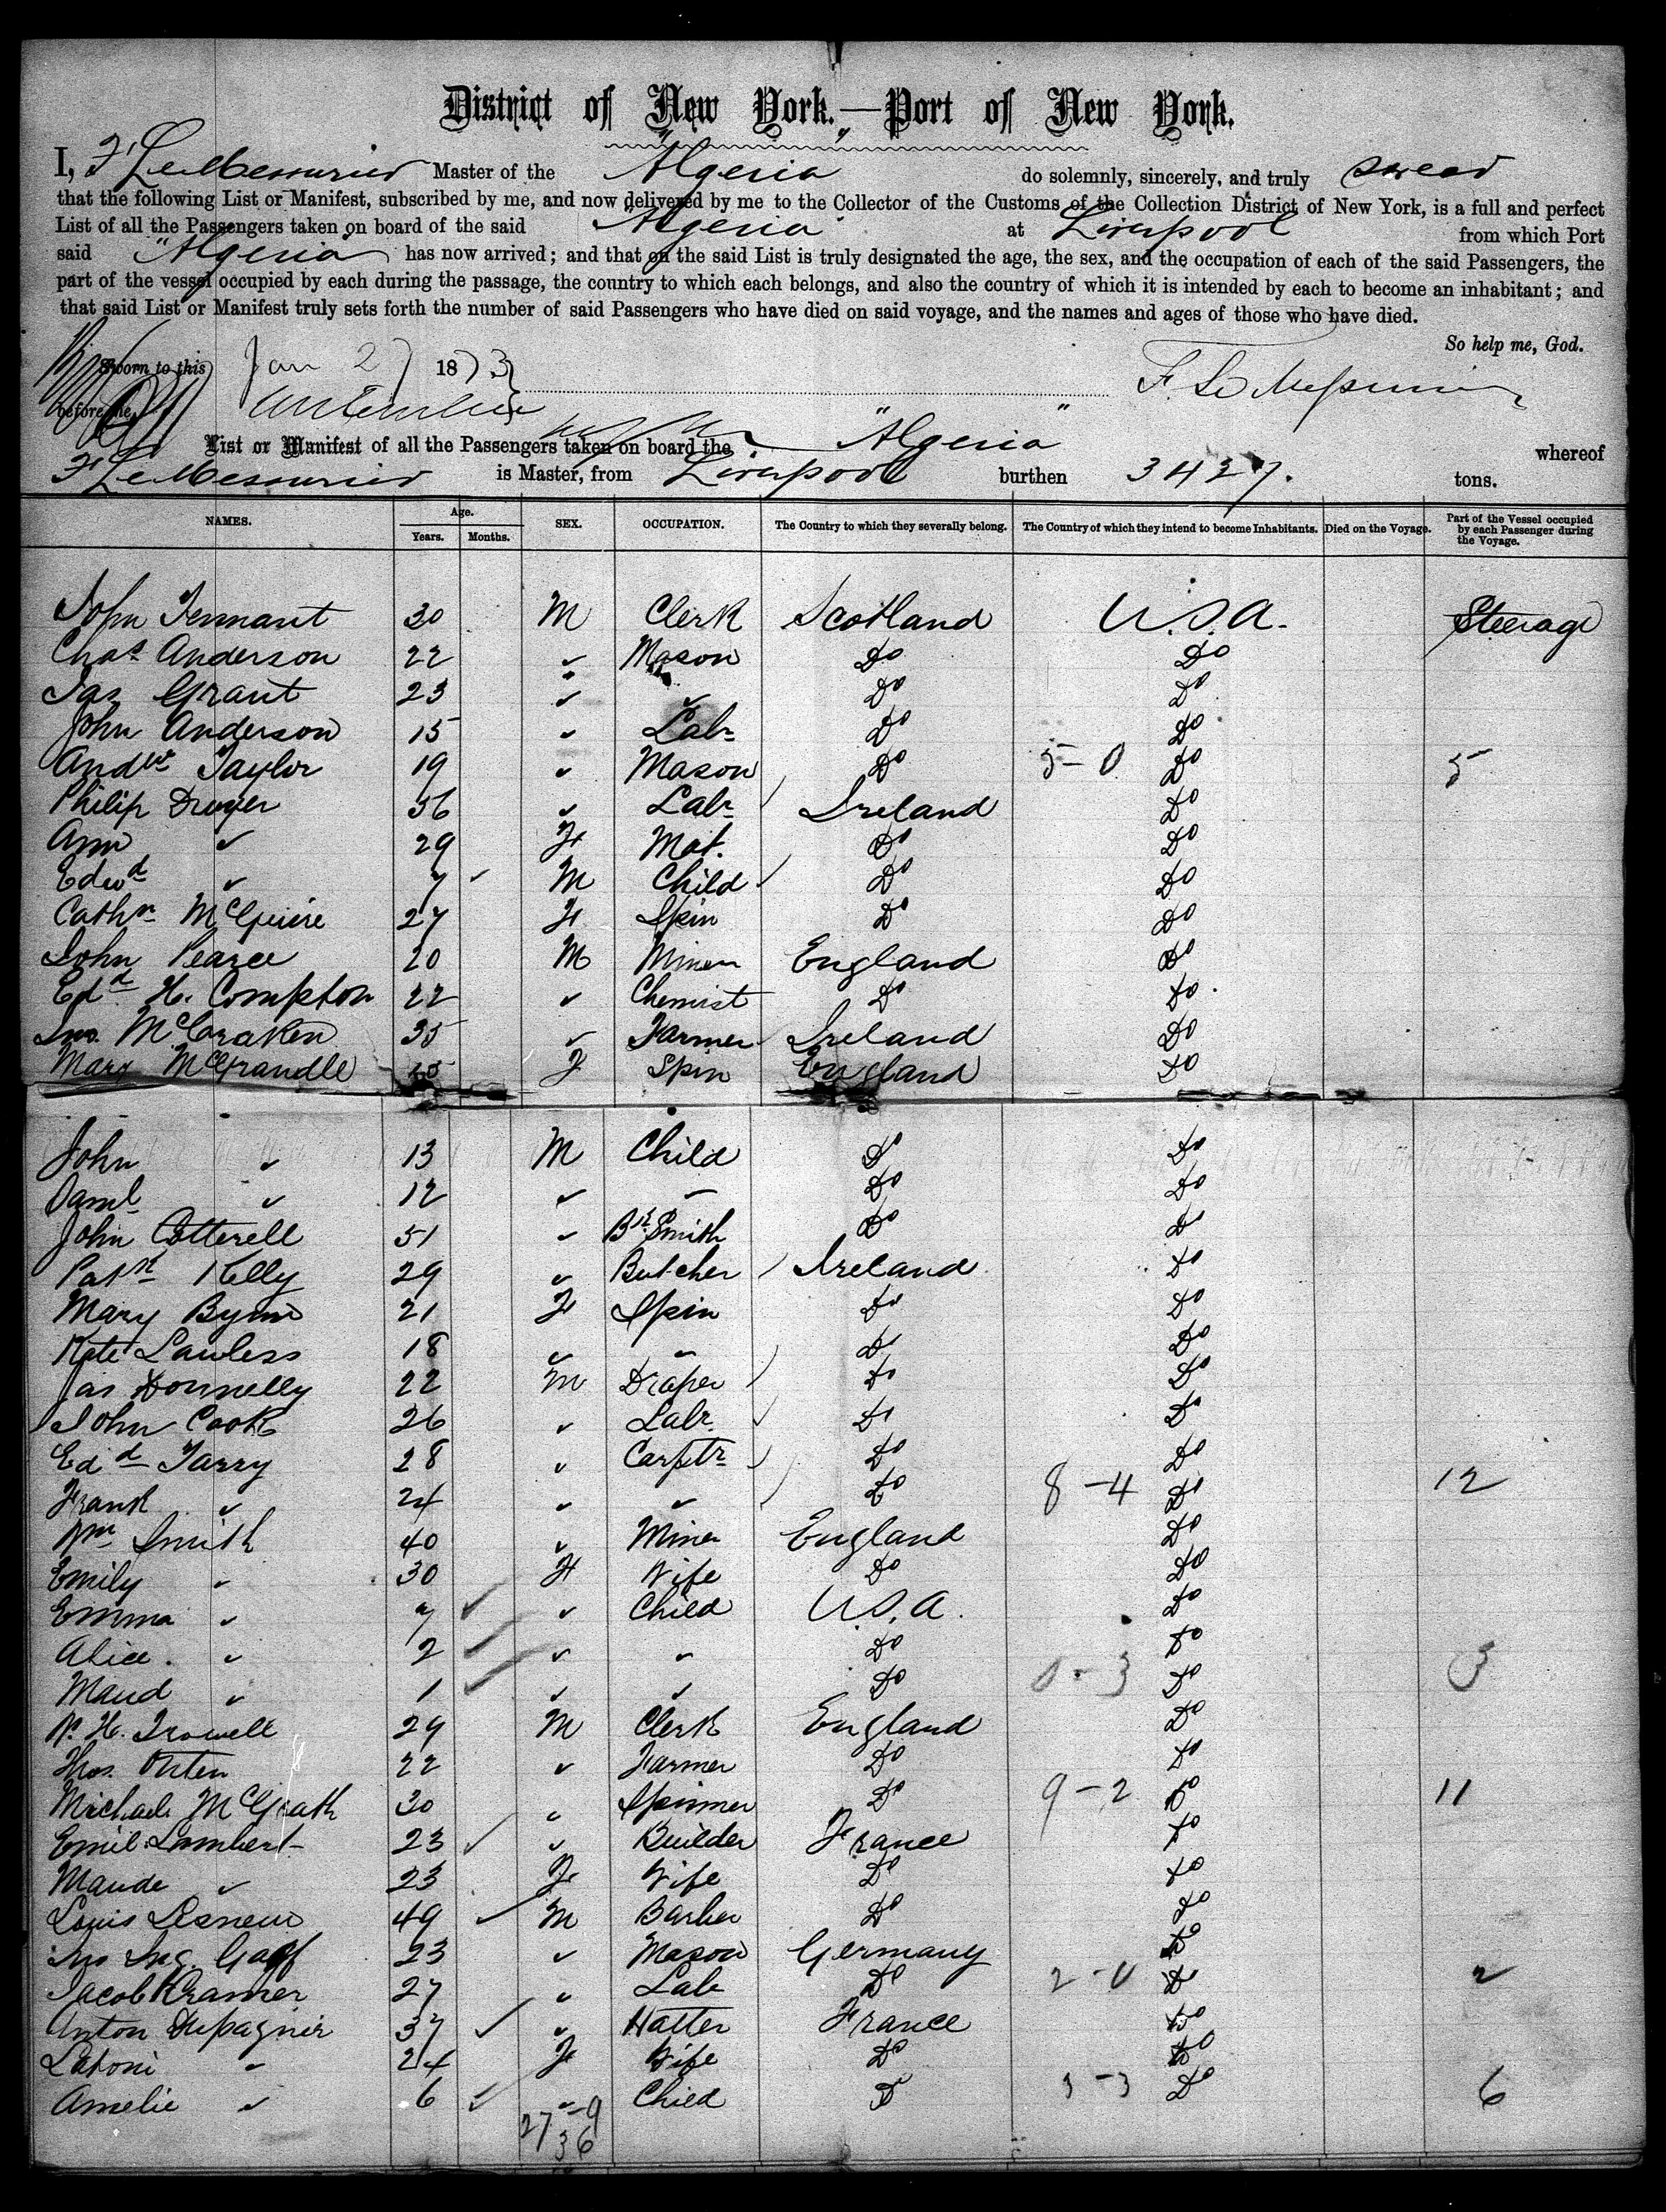 District of New York.—Port of New York.
I, F Le Messurier Master of the "Algeria" do solemnly, sincerely, and truly swear
that the following List or Manifest, subscribed by me, and now delivered by me to the Collector of the Customs of the Collection District of New York, is a full and perfect
List of all the Passengers taken on board of the said "Algeria" at Liverpool from which Port
said "Algeria" has now arrived; and that on the said List is truly designated the age, the sex, and the occupation of each of the said Passengers, the
part of the vessel occupied by each during the passage, the country to which each belongs, and also the country of which it is intended by each to become an inhabitant; and
that said List or Manifest truly sets forth the number of said Passengers who have died on said voyage, and the names and ages of those who have died.
So help me, God.
Sworn to this Jan 27 1873 F. Le Messurier
before me,
List or Manifest of all the Passengers taken on board the "Algeria" whereof
F Le Messurier is Master, from Liverpool burthen 3427. tons.
NAMES. Age. Years. Months. SEX. OCCUPATION. The Country to which they severally belong. The Country of which they intend to become Inhabitants. Died on the Voyage. Part of the Vessel occupied by each Passenger during the Voyage.
John Tennant 30 M Clerk Scotland U.S.A. Steerage
Chas Anderson 22 " Mason Do Do
Jas Grant 23 " " Do Do
John Anderson 15 " Labr Do Do
Andw Taylor 19 " Mason Do 5-0 Do 5
Philip Dwyer 36 " Labr Ireland Do
Ann " 29 F Mat. Do Do
Edwd " 7 M Child Do Do
Cathn McGuire 27 F Spin Do Do
John Pearce 20 M Miner England Do
Edd H. Compton 22 " Chemist Do Do
Jno. McCraken 35 " Farmer Ireland Do
Mary McGrandle F Spin England Do
John " 13 M Child Do Do
Saml " 12 " " Do Do
John Cotterell 51 " Bk Smith Do Do
Patk Kelly 29 " Butcher Ireland Do
Mary Byrne 21 F Spin Do Do
Kate Lawless 18 " " Do Do
Jas Donnelly 22 M Draper Do Do
John Cook 26 " Labr Do Do
Edd Tarry 28 " Carptr Do Do
Frank " 24 " " Do 8-4 Do 12
Wm Smith 40 " Miner England Do
Emily " 30 F Wife Do Do
Emma " 7 " Child U.S.A. Do
Alice. " 2 " " Do Do
Maud " 1 " " Do 0-3 Do 3
W. H. Trowell 29 M Clerk England Do
Thos. 22 " Farmer Do Do
Michael McGrath 30 " Spinner Do 9-2 Do 11
Emil Lambert 23 " Builder France Do
Maude " 23 F Wife Do Do
Louis 49 M Barber Do Do
23 " Mason Germany Do
Jacob Kramer 27 " Lab Do 2-0 Do 2
Anton 37 " Hatter France Do
24 F Wife Do Do
Amelie " 6 " Child Do 3-3 Do 6
27-9
36